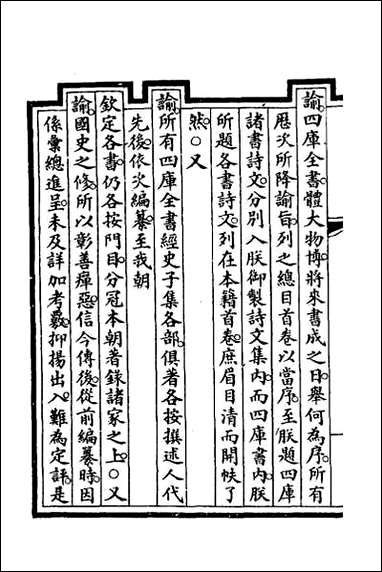 諭四庫全書體大物博將來書成之日舉何為序所有
厯次所降諭旨列之總目首卷以當序至朕題四庫
諸書詩文分别入朕御製詩文集内而四庫書内朕
所題各書詩文列在本籍首卷庶眉目清而開帙了
然○又
諭所有四庫全書經史子集各部俱著各按撰述人代
先後依次編纂至我朝
欽定各書仍各按門目分冠本朝著錄諸家之上○又
諭國史之修所以彰善癉惡信今傳後從前編纂時因
係彙總進呈未及詳加考覈抑揚出入難為定評是